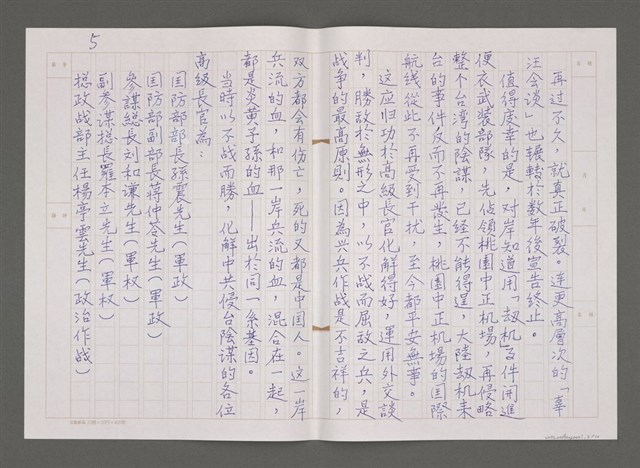 再过不久，就真正破裂，连更高層次的「辜
汪会谈」也辗轉於数年後宣告終止。
值得庆幸的是，对岸知道用「刼机事件開進
便衣武裝部隊，先佔領桃園中正机場，再侵略
整个台湾的陰謀，已经不能得逞，大陸刼机来
台的事件反而不再發生，桃園中正机場的国際
航线從此不再受到干扰，至今都平安無事。
这应归功於高級長官化解得好，運用外交談
判，勝敌於無形之中，以不战而屈敌之兵，是
战争的最高原則。因為兴兵作战是不吉祥的，
双方都会有伤亡，死的又都是中国人。这一岸
兵流的血，和那一岸兵流的血，混合在一起，
都是炎黄子孫的血——出於同一系基因。
当時以不战而勝，化解中共侵台陰謀的各位
高級長官為：
国防部部長孫震先生（軍政）
国防部副部長蒋仲苓先生（軍政）
參謀總長刘和谦先生（軍权）
副参謀揔長羅本立先生（軍权）
揔政战部主任楊亭雲先生（政治作战）
5